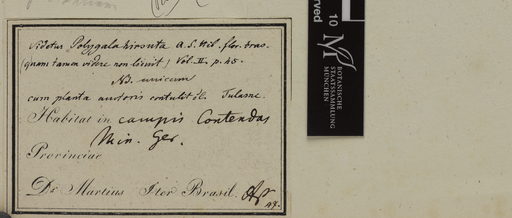 videtur Polygala hirsuta A. S. Hil. flor. bras.
quam tamen videre non licuit, Vol. II. p. 45.
NB. unicum
cum planta autoris contulit cl. Tulasne.
Habitat in campis Contendas
Min. Ger.
Provinciae
Dr. Martius Iter Brasil.
served
10
M
BOTANISCHE
STAATSSAMMLUNG
MÜNCHEN